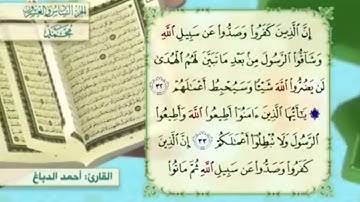 الجزء السادس والعشرون
محمد
إِنَّ الَّذِينَ كَفَرُوا وَصَدُّوا عَن سَبِيلِ اللَّهِ
وَشَاقُّوا الرَّسُولَ مِن بَعْدِ مَا تَبَيَّنَ لَهُمُ الْهُدَىٰ
لَن يَضُرُّوا اللَّهَ شَيْئًا وَسَيُحْبِطُ أَعْمَالَهُمْ ٣٢
يَا أَيُّهَا الَّذِينَ ءَامَنُوا أَطِيعُوا اللَّهَ وَأَطِيعُوا
الرَّسُولَ وَلَا تُبْطِلُوا أَعْمَالَكُمْ ٣٣ إِنَّ الَّذِينَ
كَفَرُوا وَصَدُّوا عَن سَبِيلِ اللَّهِ ثُمَّ مَاتُوا
القارئ: أحمد الدباغ